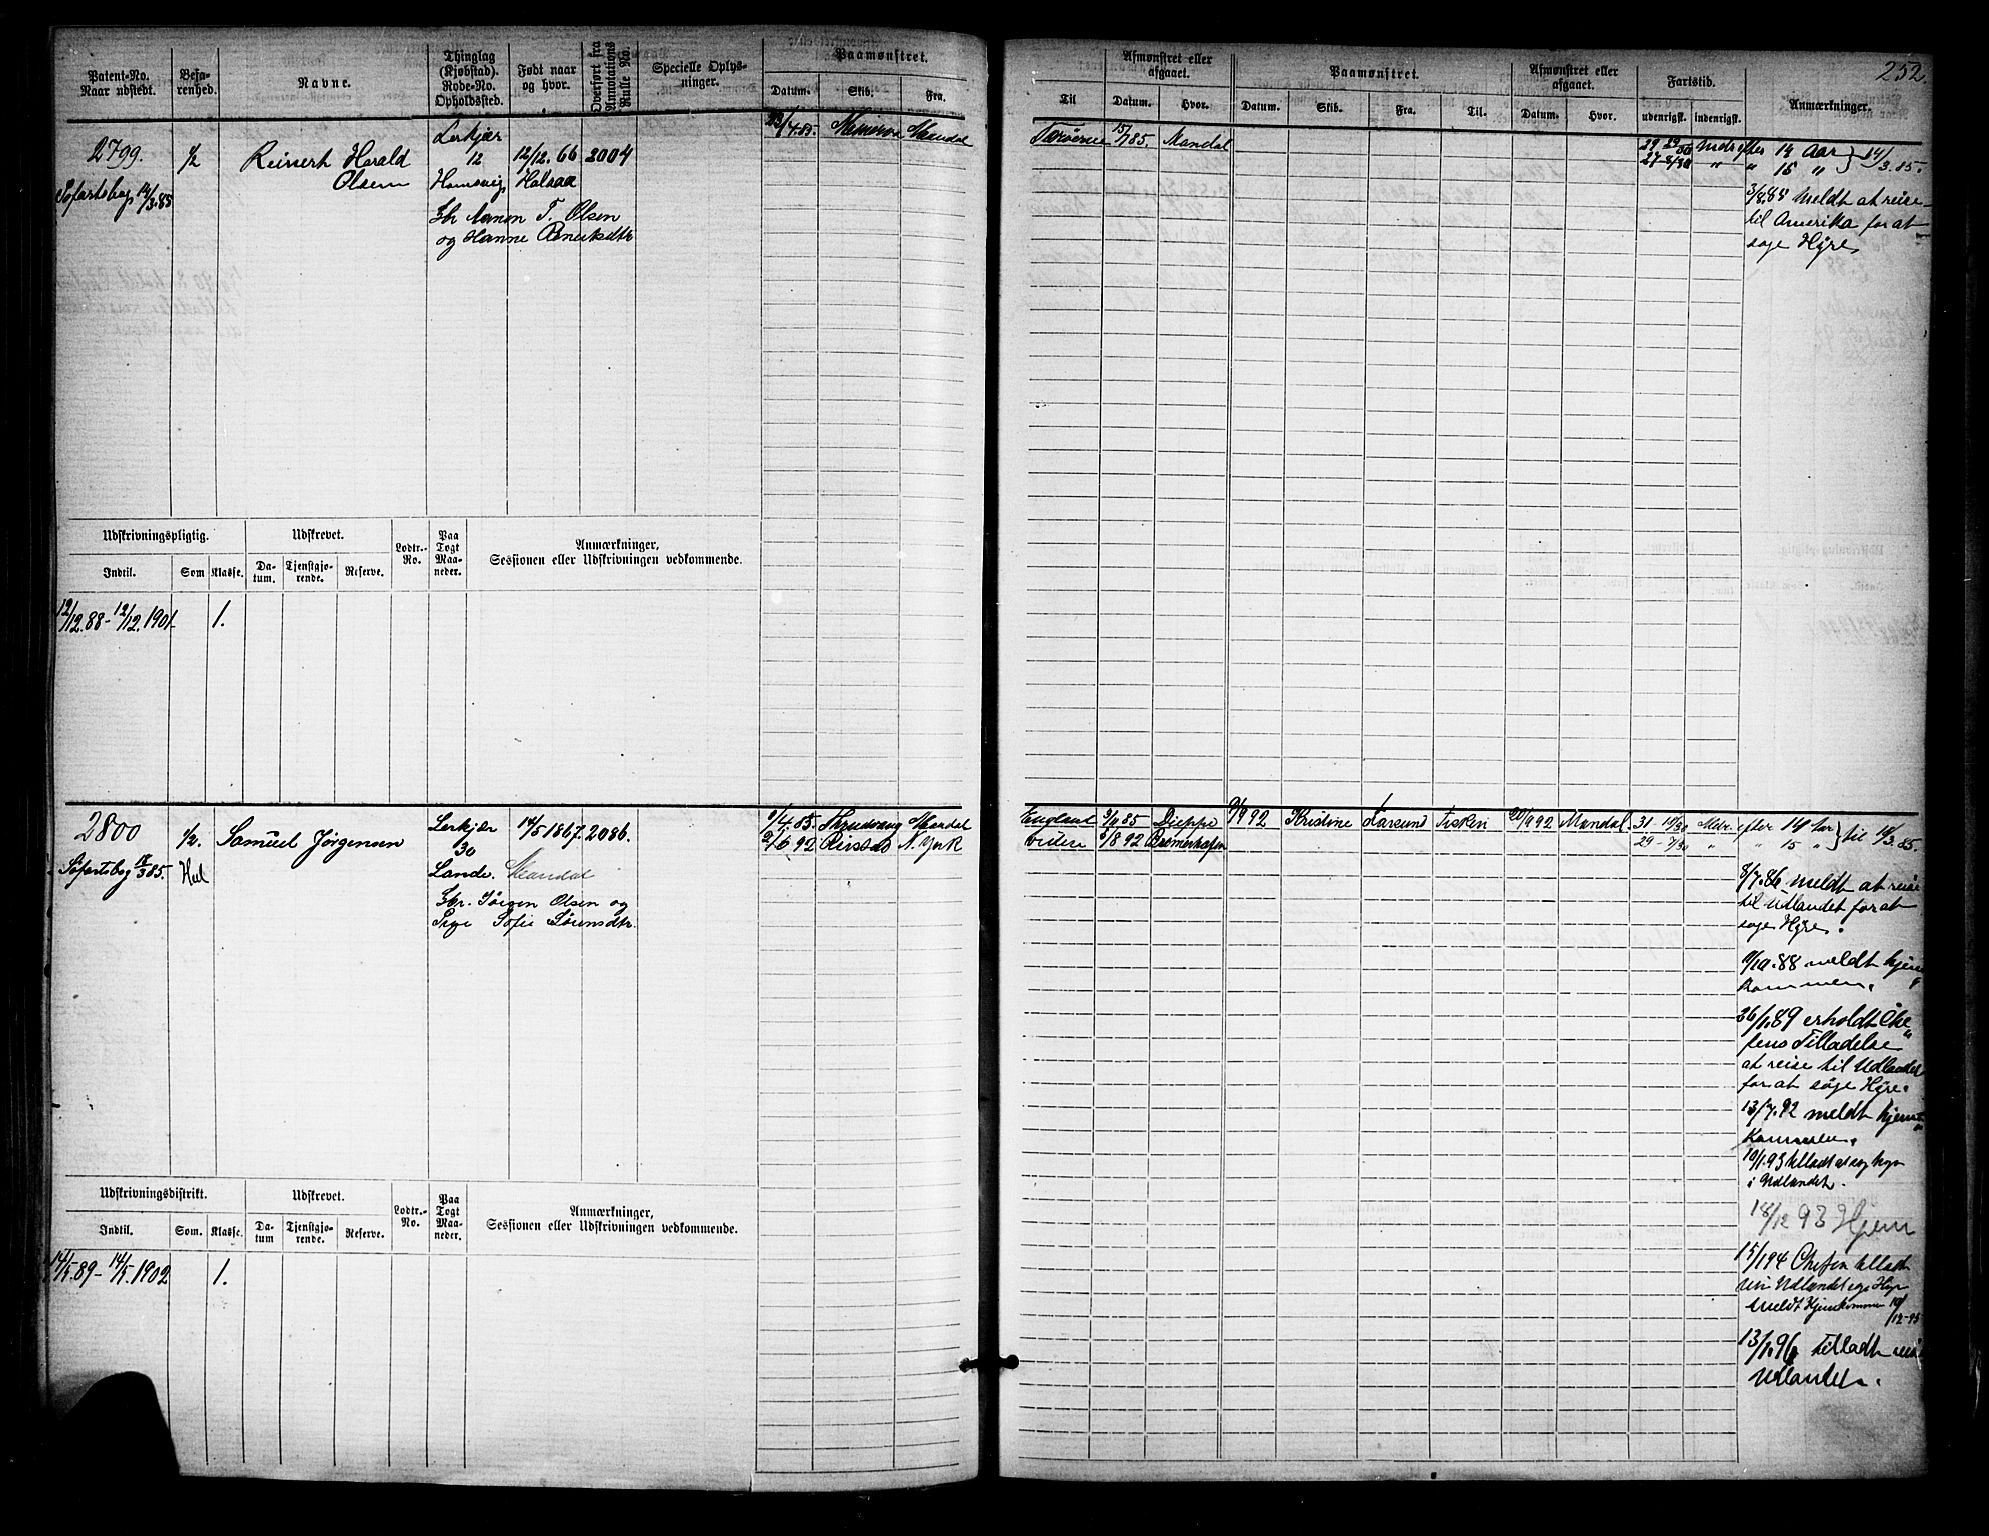 252.
Patent-No.
Naar udstedt.
Befa-
renhed.
Navne.
Thinglag
(Kjøbstad).
Rode-No.
Opholdssted.
Født naar
og hvor.
Overført fra
Annotations
Rulle No.
Specielle Oplys-
ninger.
Paamønstret.
Datum.
Skib.
Fra.
Til
Afmønstret eller
afgaaet.
Datum.
Hvor.
Paamønstret.
Datum.
Skib.
Fra.
Til.
Afmønstret eller
afgaaet.
Datum.
Hvor.
Fartstid.
udenrigsk.
indenrigsk.
Anmærkninger.
2799.
Søfartsbog 14/3.85
1/2
Reinert Harald
Olsen
Lerkjær
12
12/12.66
Halsaa
2004
Sbr Aanon T. Olsen
og Hanne
/4.85.
Minerva
Mandal
15/7 85.
Mandal
Mdr efter 14 Aar
" " 15 "
14/3.85.
3/8.88 Meldt at reise
til Amerika for at
søge Hyre
Udskrivningspligtig.
Indtil.
Som
Klasse.
Udskrevet.
Da-
tum.
Tjenstgjø-
rende.
Reserve.
Lodtr.-
No.
Paa
Togt
Maa-
neder.
Anmærkninger,
Sessionen eller Udskrivningen vedkommende.
12/12.88-12/12.1901.
1.
2800
Søfartsbog /3 85.
1/2.
Samuel Jørgensen
Lerkjær
30
Lande. Mandal
14/5 1867.
2086.
Sbr. Jörgen Olsen og
Pige Sofie Sörensdtr.
/4.85.
Mandal
/6 92
N. York
England
/85
Dieppe
videre
/8 92
Bremerhafen
9/9 92
Kristine
Farsund
Fisken
20/9 92
Mandal
31 14/30 Mdr. efter 14 Aar
29 - 7/30 " " 15 "
til 14/3.85.
8/7.86 meldt at reise
til Udlandet for at
søge Hyre.
9/10.88 meldt hjem
kommen.
26/1.89 erholdt Che
fens Tilladelse
at reise til Udlandet
for at søge Hyre.
13/7.92 meldt hjem
kommen.
10/1.93 tilladt at søg hyre
i Udlandet.
18/12 93 Hjem
15/1 94 Chefen tilladt
Udlandet søge Hyre
Meldt Hjemkommen
12-95
13/1.96 Tilladt reise
Udlandet.
Udskrivningsdistrikt.
Indtil.
Som.
Klasse.
Udskrevet.
Da-
tum
Tjenstgjø-
rende.
Reserve.
Lodtr.-
No.
Paa
Togt
Maa-
neder.
Anmærkninger,
Sessionen eller Udskrivningen vedkommende.
14/5.89-14/5.1902
1.